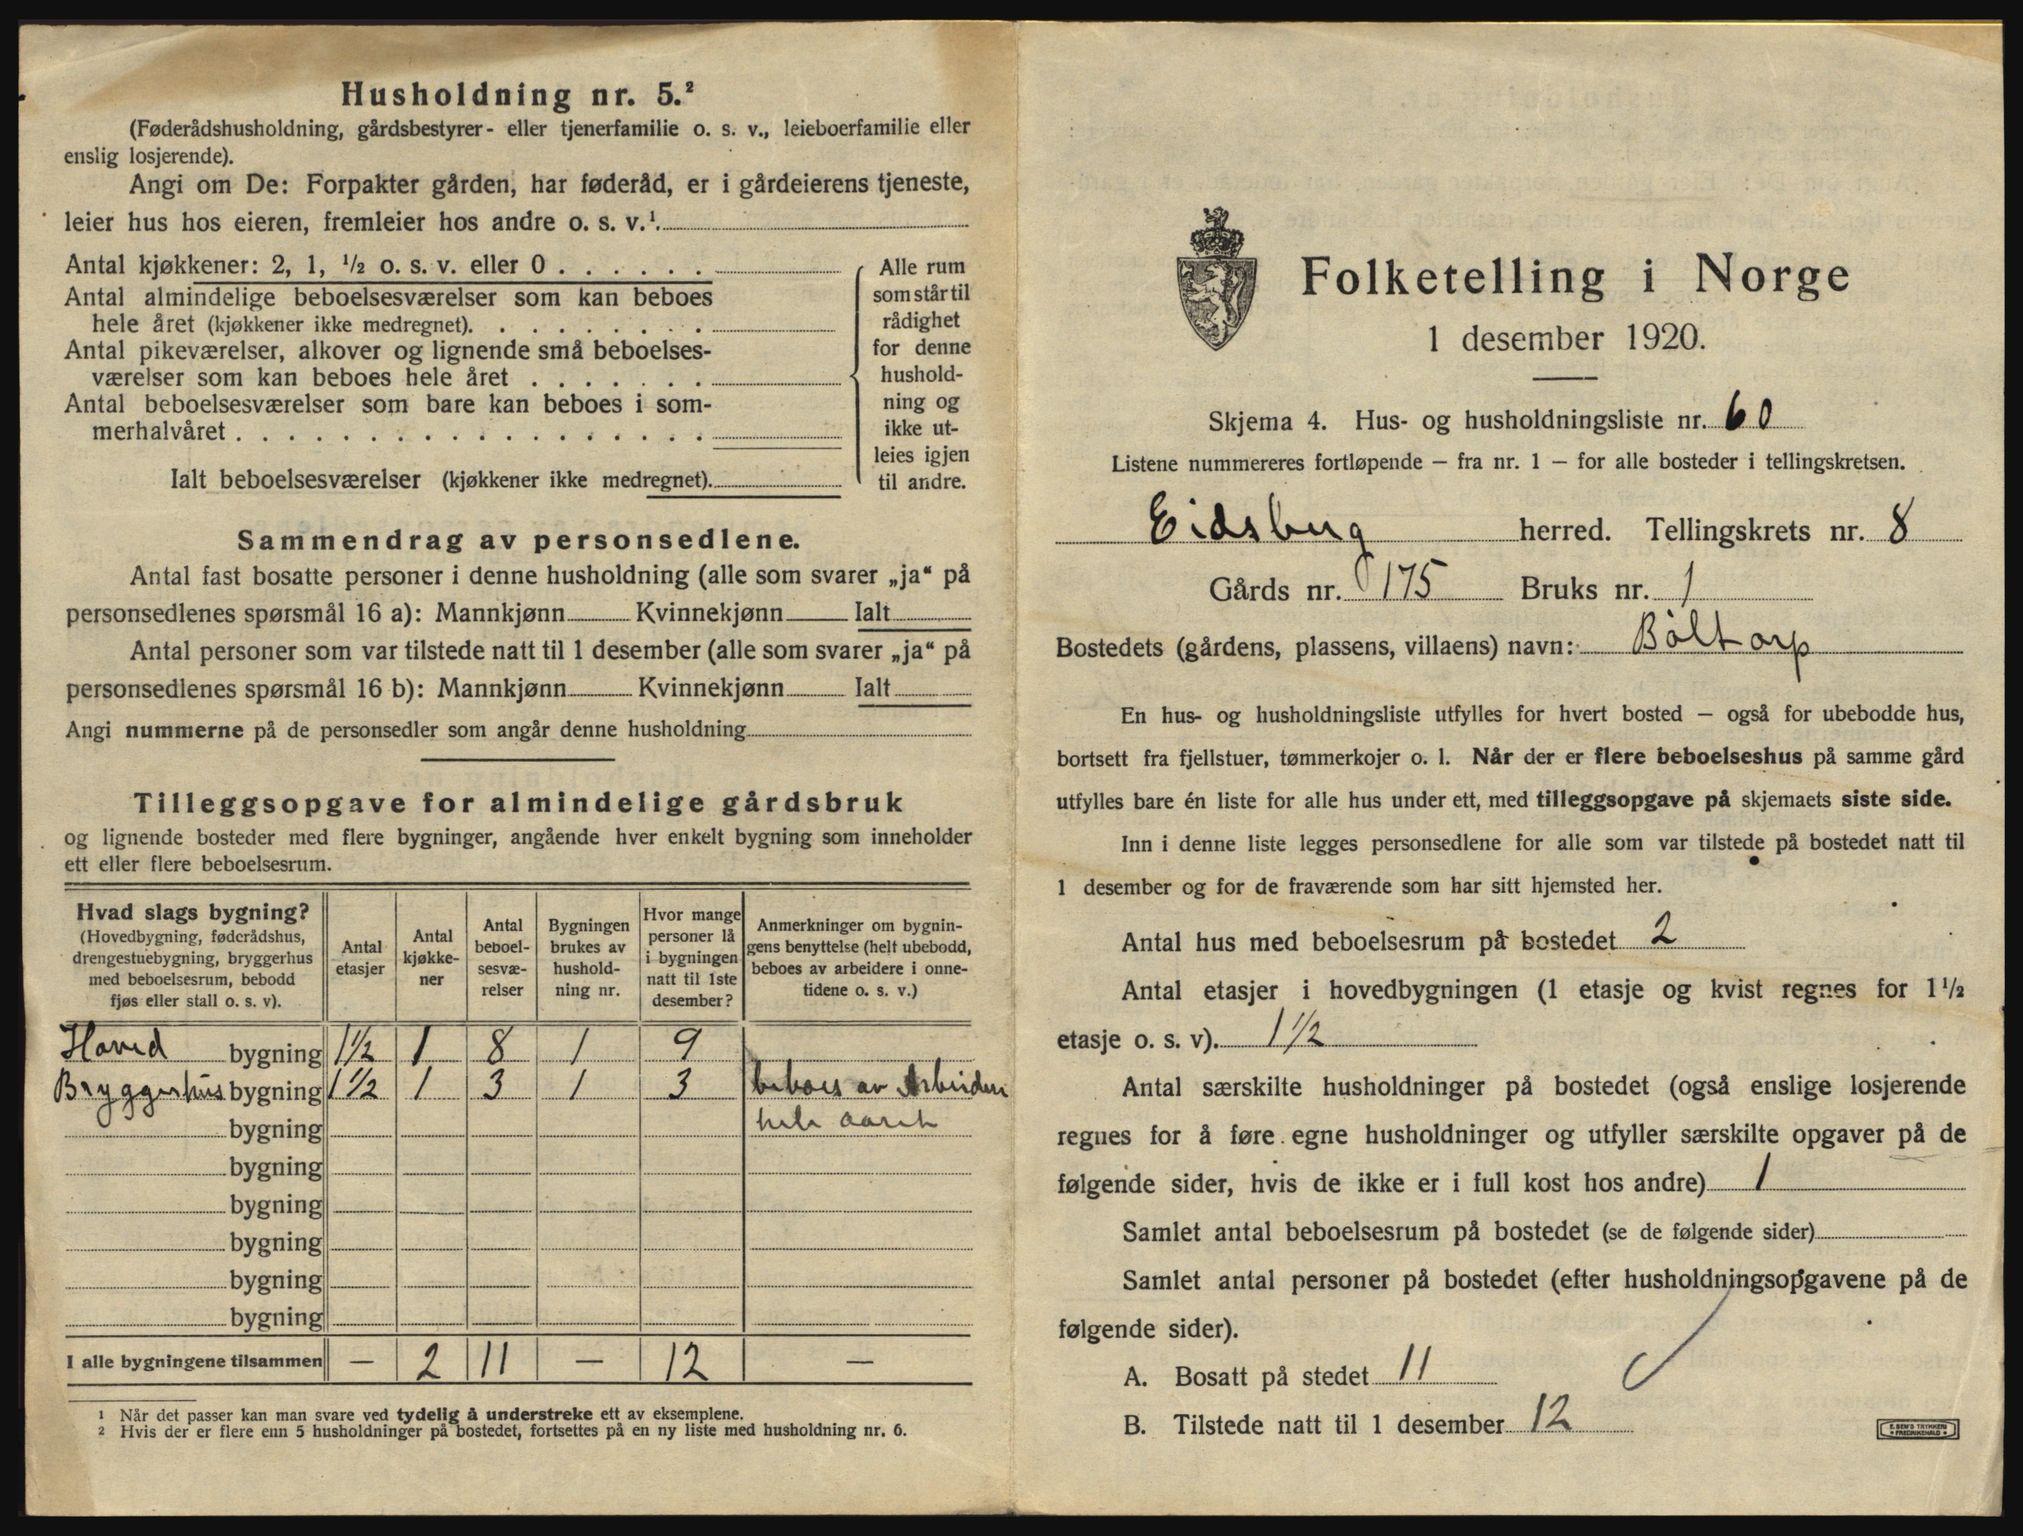 Husholdning nr. 5.²
(Føderådshusholdning, gårdsbestyrer- eller tjenerfamilie o. s. v., leieboerfamilie eller
enslig losjerende).
Angi om De: Forpakter gården, har føderåd, er i gårdeierens tjeneste,
leier hus hos eieren, fremleier hos andre o. s. v.¹.
Antal kjøkkener: 2, 1, ½ o. s. v. eller 0 . . . . . .
Antal almindelige beboelsesværelser som kan beboes
hele året (kjøkkener ikke medregnet). . . . . . . . .
Antal pikeværelser, alkover og lignende små beboelses-
værelser som kan beboes hele året . . . . . . .
Antal beboelsesværelser som bare kan beboes i som-
merhalvåret . . . . . . . . . . . . . . . . . .
Ialt beboelsesværelser (kjøkkener ikke medregnet).
Alle rum
som står til
rådighet
for denne
hushold-
ning og
ikke ut-
leies igjen
til andre.
Sammendrag av personsedlene.
Antal fast bosatte personer i denne husholdning (alle som svarer „ja“ på
personsedlenes spørsmål 16 a): Mannkjønn Kvinnekjønn Ialt
Antal personer som var tilstede natt til 1 desember (alle som svarer „ja“ på
personsedlenes spørsmål 16 b): Mannkjønn Kvinnekjønn Ialt
Angi nummerne på de personsedler som angår denne husholdning
Tilleggsopgave for almindelige gårdsbruk
og lignende bosteder med flere bygninger, angående hver enkelt bygning som inneholder
ett eller flere beboelsesrum.
Hvad slags bygning?
(Hovedbygning, føderådshus,
drengestuebygning, bryggerhus
med beboelsesrum, bebodd
fjøs eller stall o. s. v).
Antal
etasjer
Antal
kjøkke-
ner
Antal
beboel-
sesvæ-
relser
Bygningen
brukes av
hushold-
ning nr.
Hvor mange
personer lå
i bygningen
natt til 1ste
desember?
Anmerkninger om bygnin-
gens benyttelse (helt ubebodd,
beboes av arbeidere i onne-
tidene o. s. v.)
Hoved bygning 1½ 1 8 1 9
Bryggerhus bygning 1½ 1 3 1 3 beboes av Arbeider
bygning hele aaret
bygning
bygning
bygning
bygning
bygning
I alle bygningene tilsammen — 2 11 — 12 —
¹ Når det passer kan man svare ved tydelig å understreke ett av eksemplene.
² Hvis der er flere enn 5 husholdninger på bostedet, fortsettes på en ny liste med husholdning nr. 6.
Folketelling i Norge
1 desember 1920.
Skjema 4. Hus- og husholdningsliste nr. 60
Listene nummereres fortløpende — fra nr. 1 — for alle bosteder i tellingskretsen.
Eidsberg herred. Tellingskrets nr. 8
Gårds nr. 175 Bruks nr. 1
Bostedets (gårdens, plassens, villaens) navn: Bøltorp
En hus- og husholdningsliste utfylles for hvert bosted — også for ubebodde hus,
bortsett fra fjellstuer, tømmerkojer o. l. Når der er flere beboelseshus på samme gård
utfylles bare én liste for alle hus under ett, med tilleggsopgave på skjemaets siste side.
Inn i denne liste legges personsedlene for alle som var tilstede på bostedet natt til
1 desember og for de fraværende som har sitt hjemsted her.
Antal hus med beboelsesrum på bostedet 2
Antal etasjer i hovedbygningen (1 etasje og kvist regnes for 1½
etasje o. s. v). 1½
Antal særskilte husholdninger på bostedet (også enslige losjerende
regnes for å føre egne husholdninger og utfyller særskilte opgaver på de
følgende sider, hvis de ikke er i full kost hos andre) 1
Samlet antal beboelsesrum på bostedet (se de følgende sider)
Samlet antal personer på bostedet (efter husholdningsopgavene på de
følgende sider).
A. Bosatt på stedet 11
B. Tilstede natt til 1 desember 12